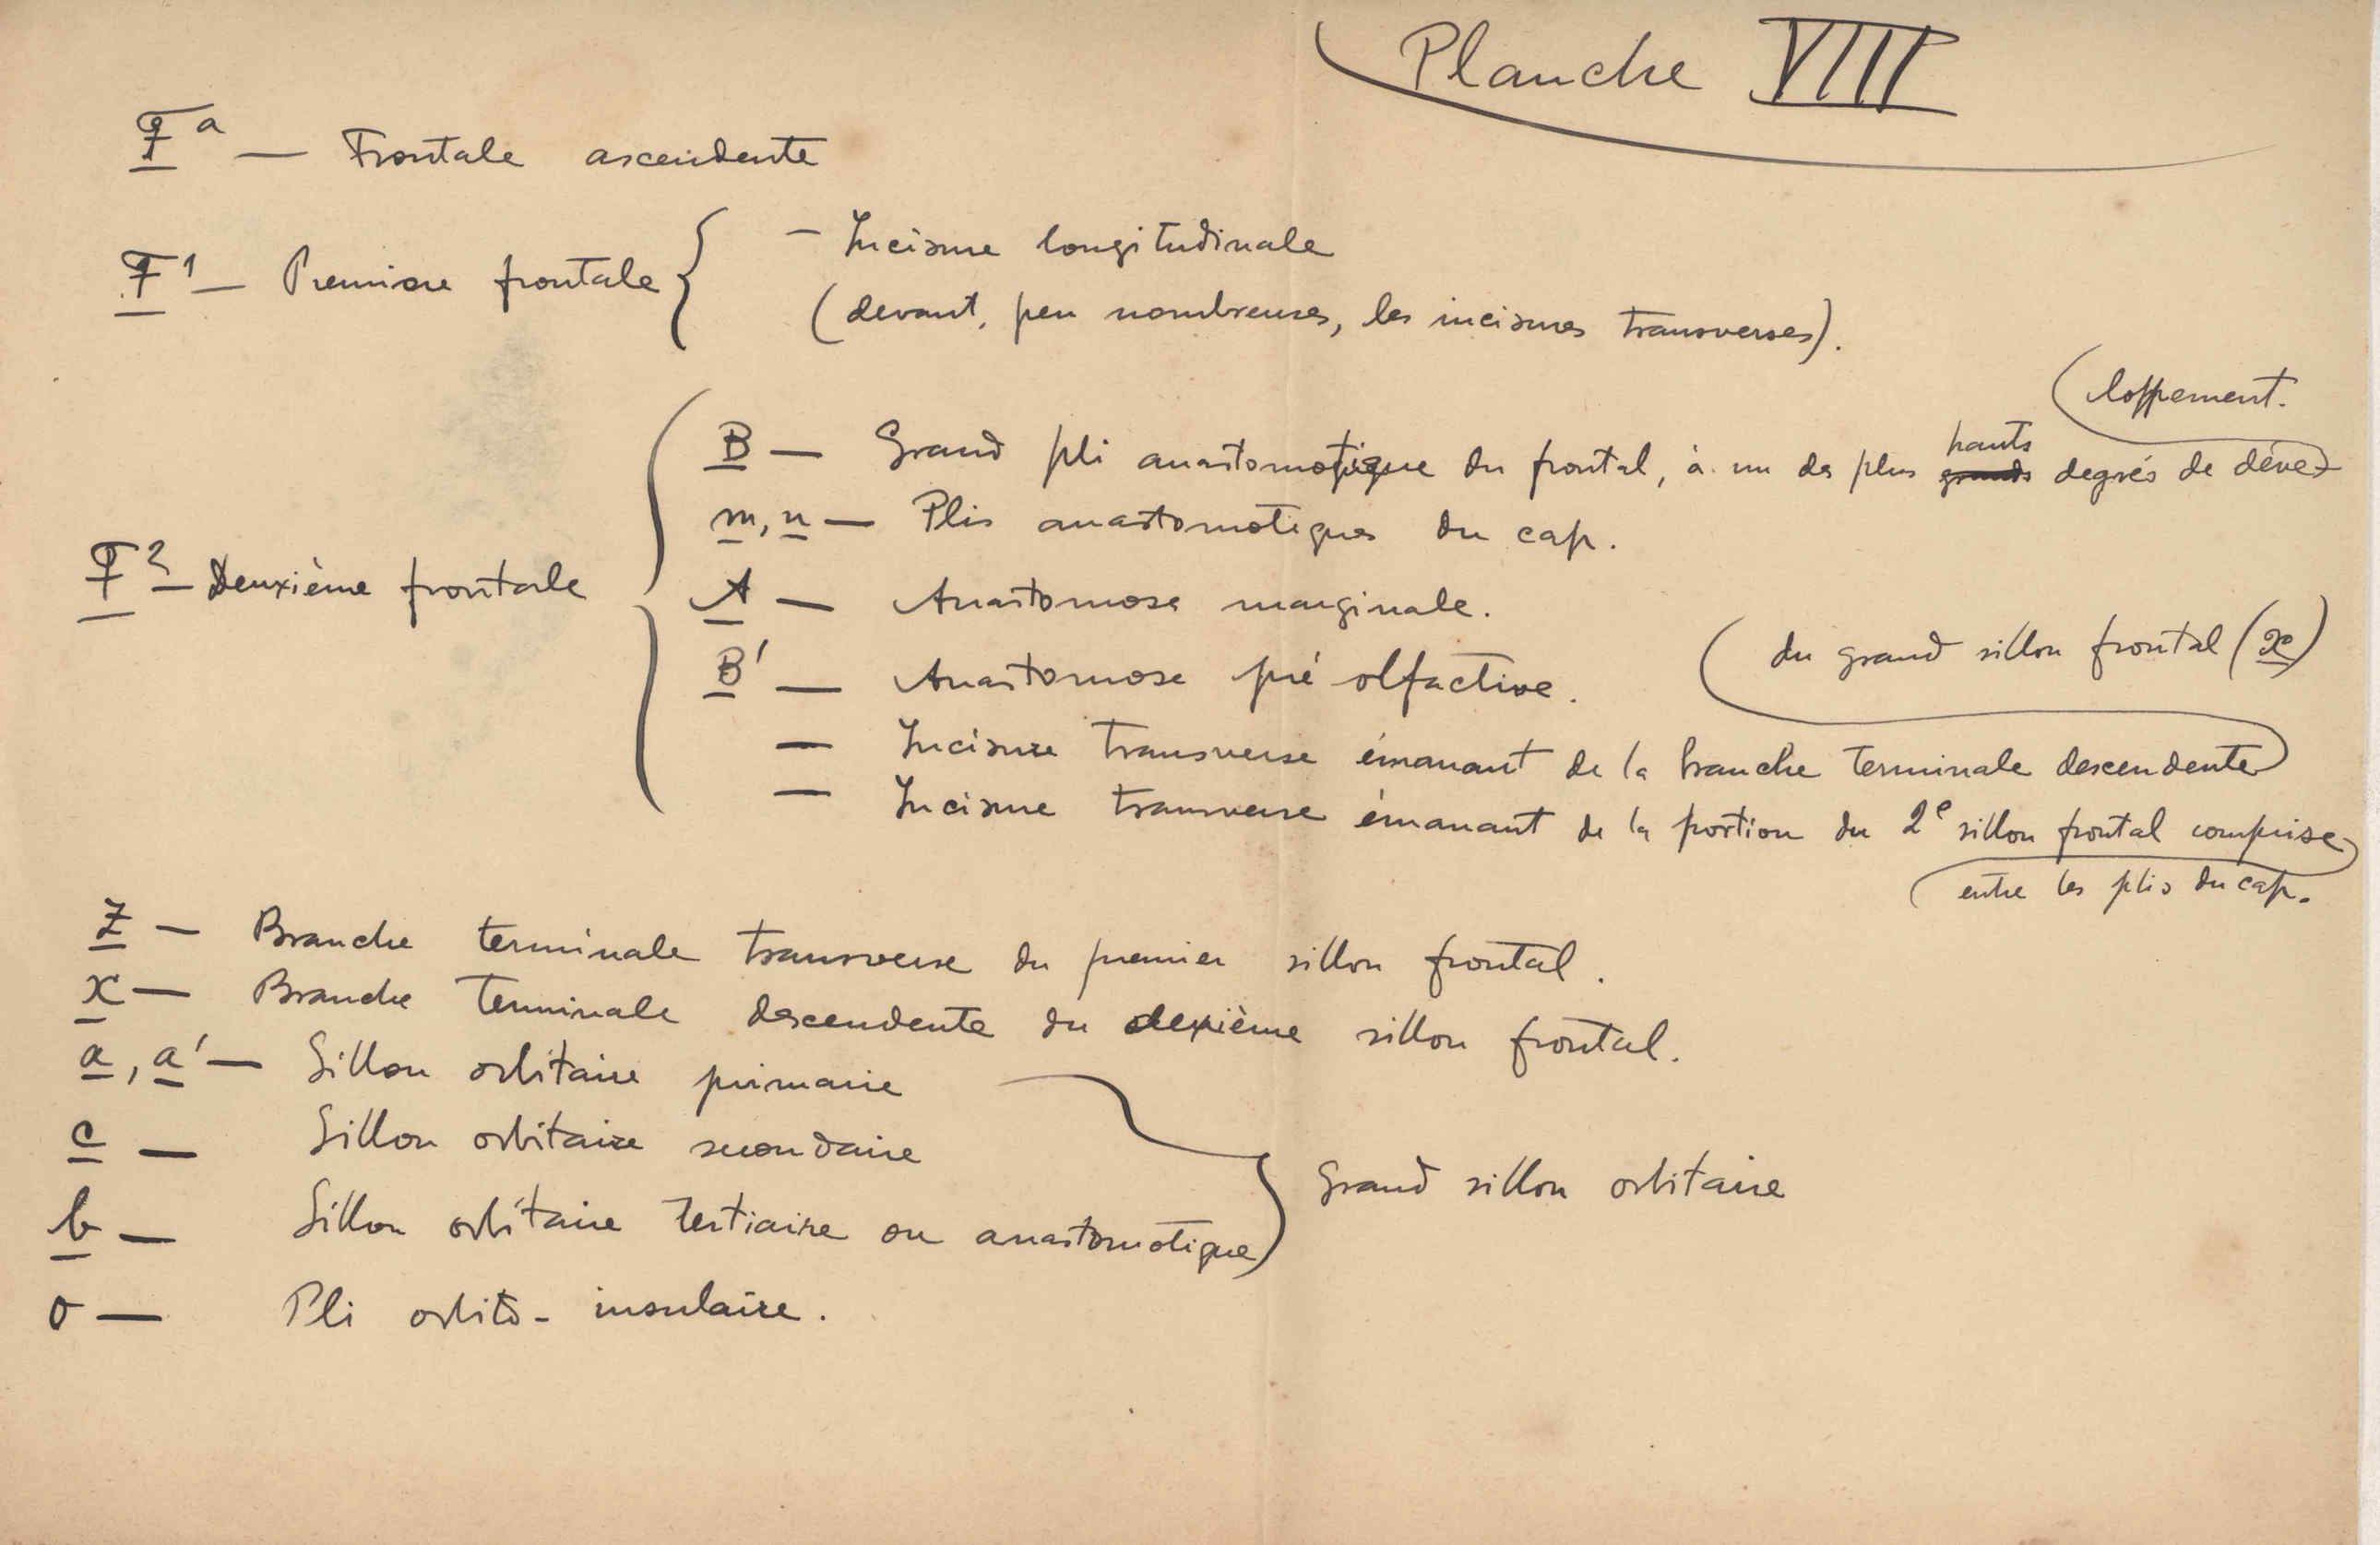 Planche VIII
Fᵃ — Frontale ascendente
F¹ — Première frontale { — Incisure longitudinale
(devant, peu nombreuses, les incisures transverses).
F² — Deuxième frontale
B — Grand pli anastomotique du frontal, à un des plus grands hauts degrés de déve-
(loppement.
m, n — Plis anastomotiques du cap.
A — Anastomose marginale.
B' — Anastomose pré olfactive.
— Incisure transverse émanant de la branche terminale descendente
(du grand sillon frontal (x)
— Incisure transverse émanant de la portion du 2ᵉ sillon frontal comprise
(entre les plis du cap.
z — Branche terminale transverse du premier sillon frontal.
x — Branche terminale descendente du dexième sillon frontal.
a, a' — Sillon orbitaire primaire
c — Sillon orbitaire secondaire
b — Sillon orbitaire tertiaire ou anastomotique
} Grand sillon orbitaire
o — Pli orbito-insulaire.